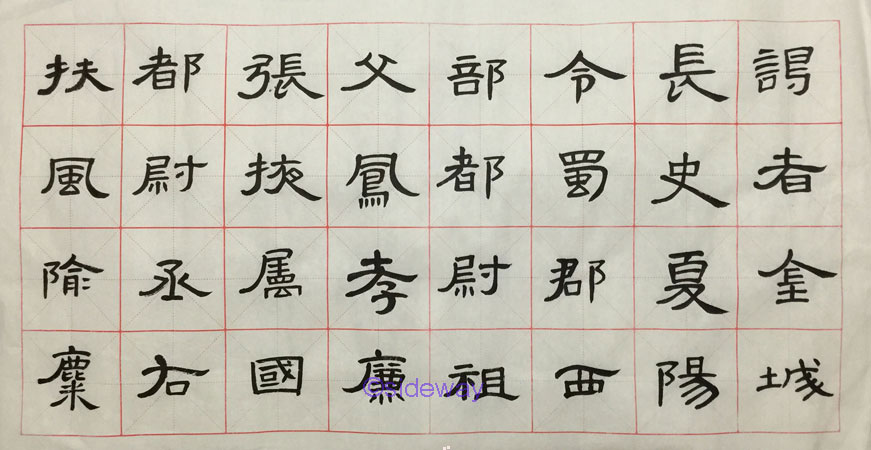 謁者金城
長史夏陽
令蜀郡西
部都尉祖
父鳳孝廉
張掖屬國
都尉丞右
扶風隃麋
©sideway